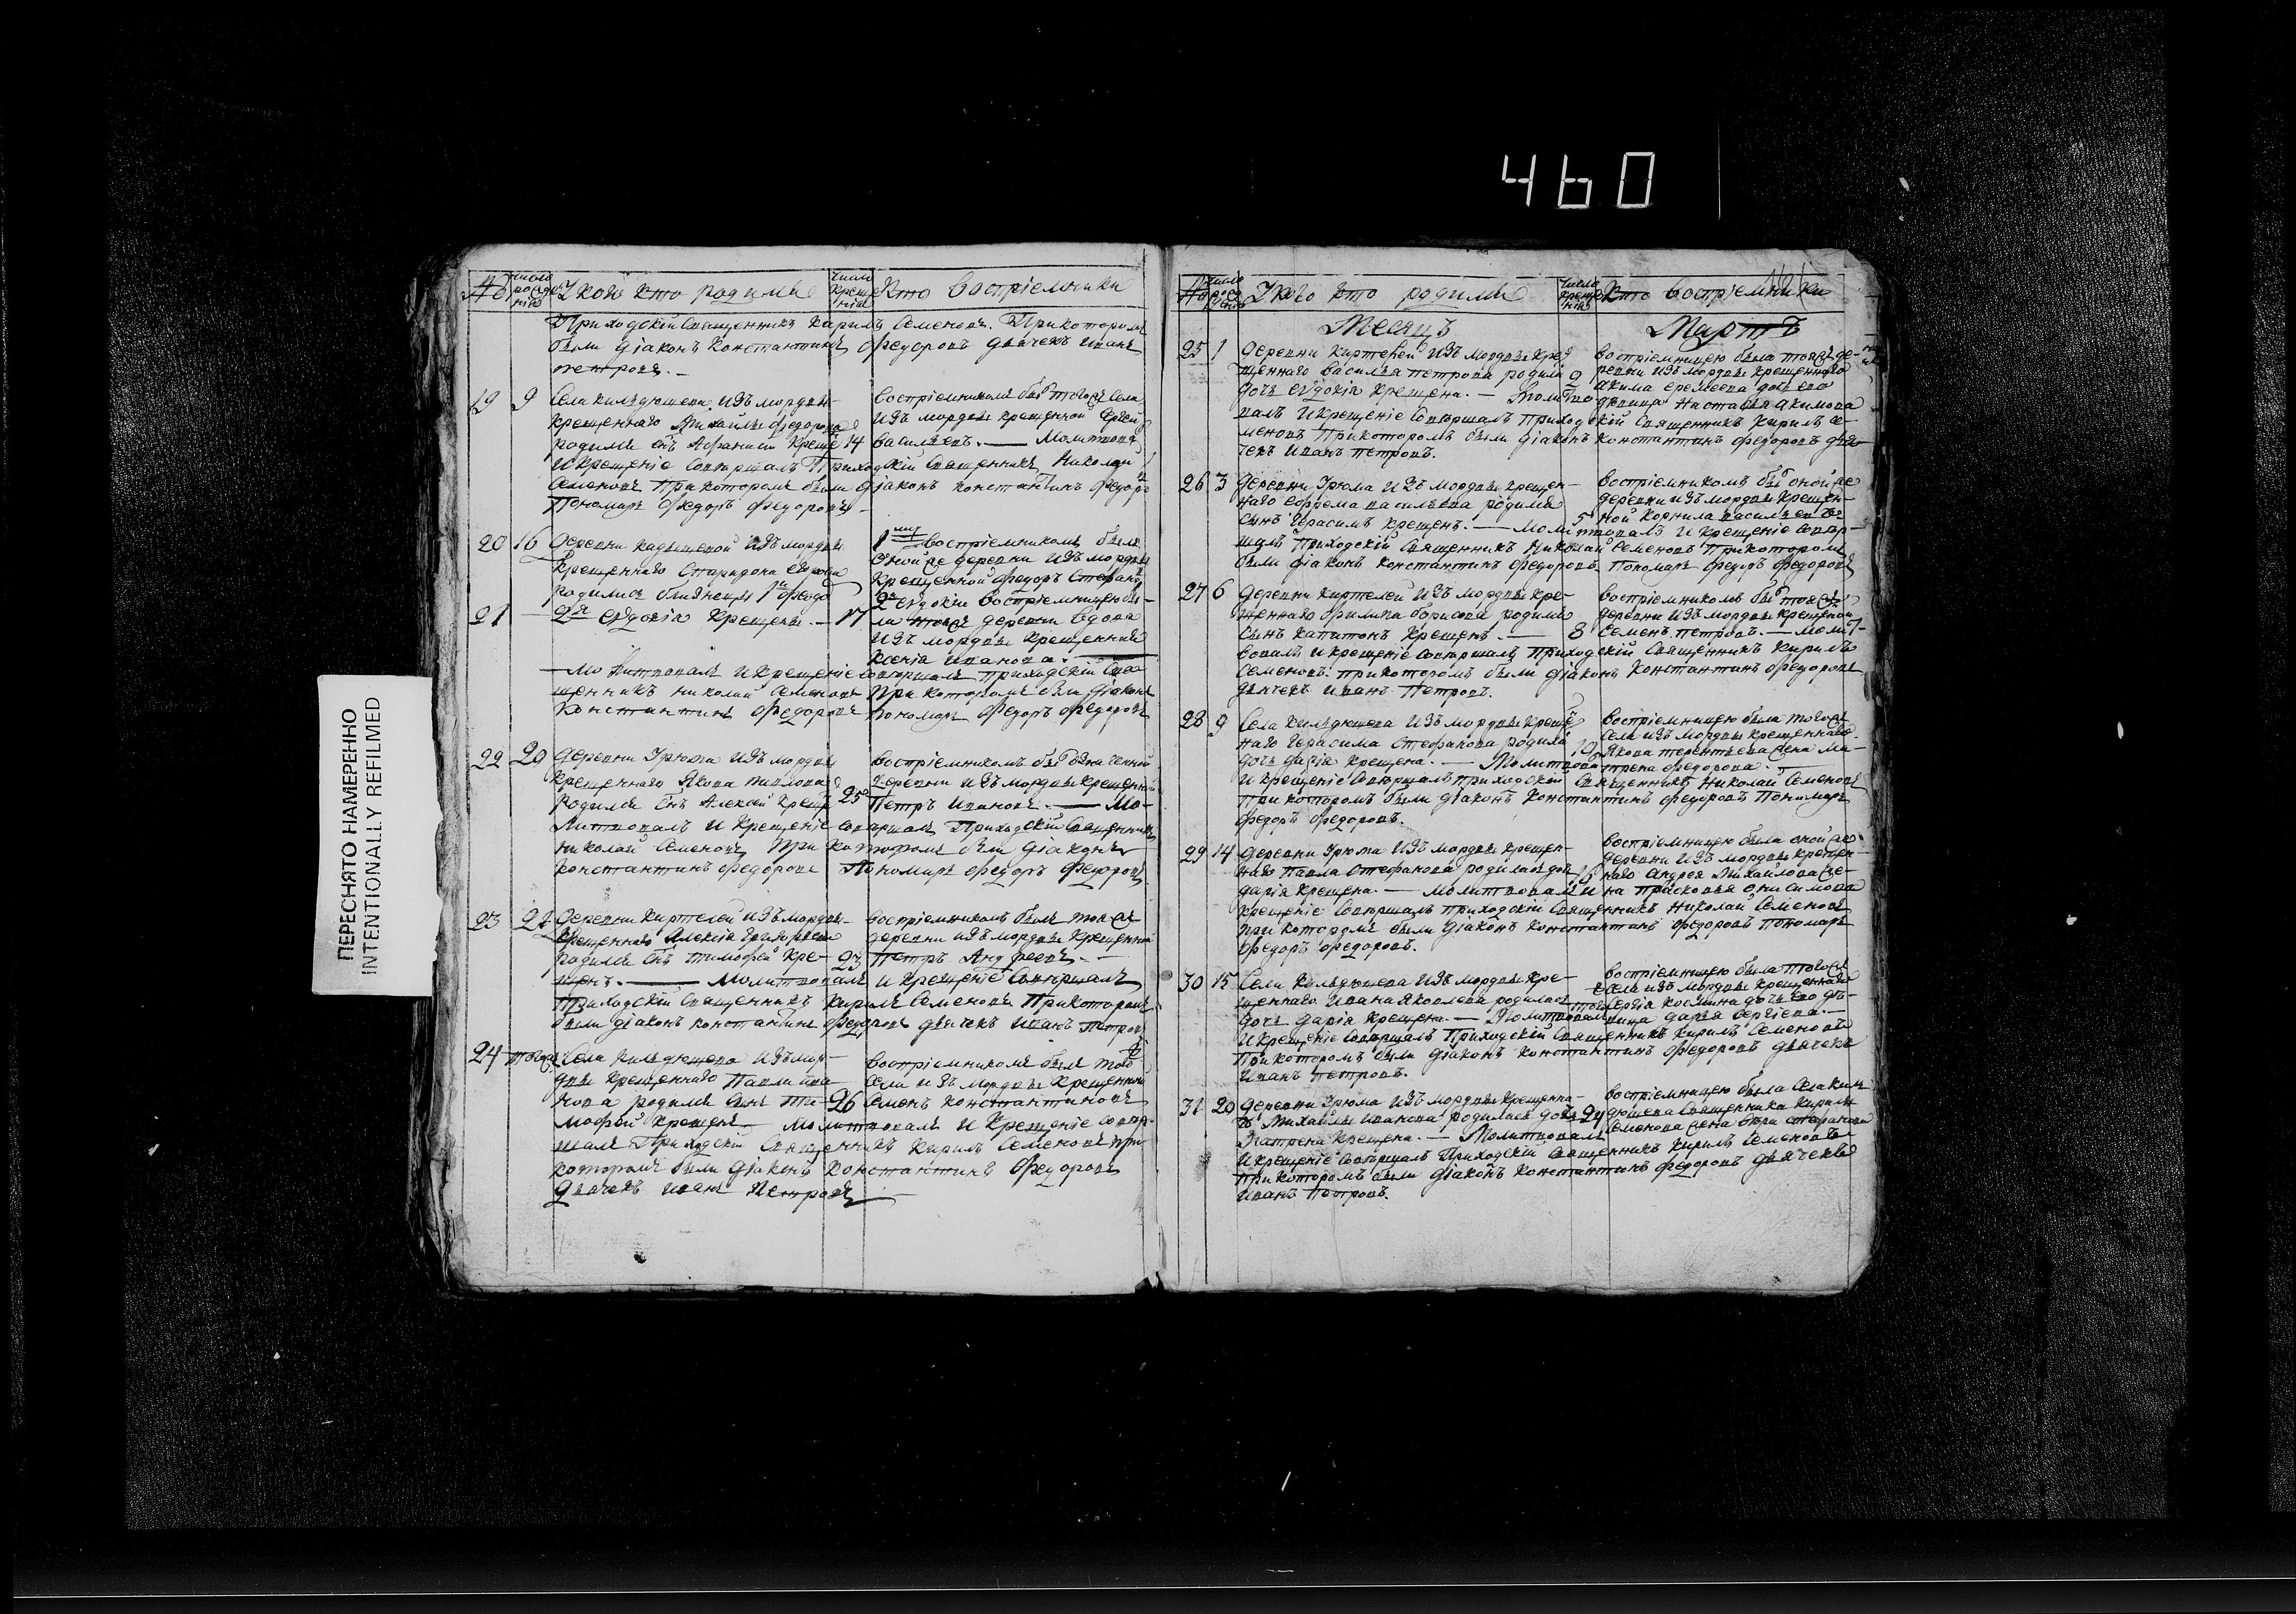 460
ПЕРЕСНЯТО НАМЕРЕННО
INTENTIONALLY REFILMED
№ число рожденія У кого кто родился число крещенія Кто воспріемники
Приходскій Священникъ Кирилъ Семеновъ. При которомъ
были діаконъ Константинъ Федоровъ дьячекъ Иванъ
Петровъ. —
19 9 Села Кильдюшева изъ мордвы
крещеннаго Михайлы Федорова
родился снъ Афанасій крещенъ 14
воспріемникомъ былъ тогожъ села
изъ мордвы крещенной Сергей
Васильевъ. — Молитвовалъ
и крещеніе совершалъ Приходскій Священникъ Николай
Семеновъ При которомъ были діаконъ Константинъ Федоровъ
Пономарь Федоръ Федоровъ —
20 16 Деревни Кадышевой изъ мордвы
крещеннаго Спиридона
родились близнецы 1й Федоръ
21 — 2я Евдокія крещены. — 17
1му воспріемникомъ былъ
оной же деревни изъ мордвы
крещенной Федоръ Стефановъ
2й Евдокіи воспріемницею бы-
ла тояжъ деревни вдова
изъ мордвы крещенная
Ксенія Иванова. —
— Молитвовалъ и крещеніе совершалъ приходскій Свя-
щенникъ Николай Семеновъ При которомъ были діаконъ
Константинъ Федоровъ Пономарь Федоръ Федоровъ
22 20 Деревни Урюма изъ мордвы
крещеннаго Якова Павлова
родился снъ Алексей крещенъ 25
воспріемникомъ былъ
деревни изъ мордвы крещенной
Петръ Ивановъ. — Мо-
литвовалъ и крещеніе совершалъ Приходскій Священникъ
Николай Семеновъ При которомъ были діаконъ
Константинъ Федоровъ Пономарь Федоръ Федоровъ
23 21 Деревни Киртелей изъ мордвы
крещеннаго Алексія Григорьева
родился снъ Тимофей кре- 23
щенъ. — Молитвовалъ и крещеніе совершалъ
воспріемникомъ былъ тояжъ
деревни изъ мордвы крещенной
Петръ Андреевъ. —
Приходскій Священникъ Кирилъ Семеновъ При которомъ
были діаконъ Константинъ Федоровъ дьячекъ Иванъ Петровъ
24 тогожъ Села Кильдюшева изъ мор-
двы крещеннаго Павла Ива-
нова родился снъ Ти- 26
мофей крещенъ — Молитвовалъ и крещеніе совер-
воспріемникомъ былъ тогожъ
села изъ мордвы крещенной
Семенъ Константиновъ
шалъ Приходскій Священникъ Кирилъ Семеновъ при
которомъ были діаконъ Константинъ Федоровъ
дьячекъ Иванъ Петровъ —
№ число рожденія У кого кто родился число крещенія Кто воспріемники
Месяцъ Мартъ
25 1 Деревни Киртелей изъ мордвы кре-
щеннаго Василья Петрова родилась 2
дочь Евдокія крещена. — Молитво-
воспріемницею была тояжъ де-
ревни изъ мордвы крещеннаго
Акима Еремеева дочь его
девица Настасья Акимова
валъ и крещеніе совершалъ Приходскій Священникъ Кирилъ Се-
меновъ При которомъ были діаконъ Константинъ Федоровъ дья-
чекъ Иванъ Петровъ.
26 3 Деревни Урюма изъ мордвы крещен-
наго Ефрема Васильева родился
сынъ Герасимъ крещенъ. — 5
воспріемникомъ былъ оной же
деревни изъ мордвы крещен-
ной Корнила Васильевъ
Молитвовалъ и крещеніе совер-
шалъ Приходскій Священникъ Николай Семеновъ При которомъ
были діаконъ Константинъ Федоровъ Пономарь Федоръ Федоровъ
27 6 Деревни Киртелей изъ мордвы кре-
щеннаго Филипа Борисова родился
сынъ Капитонъ крещенъ. — 8
воспріемникомъ былъ тояжъ
деревни изъ мордвы крещеной
Семенъ Петровъ. — Молит-
вовалъ и крещеніе совершалъ Приходскій Священникъ Кирилъ
Семеновъ при которомъ были діаконъ Константинъ Федоровъ
дьячекъ Иванъ Петровъ.
28 9 Села Кильдюшева изъ мордвы креще-
наго Герасима Стефанова родилась 10
дочь Дарія крещена. — Молитвовалъ
воспріемницею была тогожъ
села изъ мордвы крещеннаго
Якова Терентьева жена Ма-
трена Федорова. —
и крещеніе совершалъ приходскій Священникъ Николай Семеновъ
При которомъ были діаконъ Константинъ Федоровъ Пономарь
Федоръ Федоровъ.
29 14 Деревни Урюма изъ мордвы крещен-
наго Павла Стефанова родилась дочь
Дарія крещена. — Молитвовалъ и
воспріемницею была оной же
деревни изъ мордвы крещен-
наго Андрея Михайлова же-
на Прасковья Онисимова
крещеніе совершалъ приходскій Священникъ Николай Семеновъ
при которомъ были діаконъ Константинъ Федоровъ Пономарь
Федоръ Федоровъ.
30 15 Села Кильдюшева изъ мордвы кре-
щеннаго Ивана Яковлева родилась тогожъ
дочь Дарія крещена. — Молитвовалъ
воспріемницею была тогожъ
села изъ мордвы крещеннаго
Сергія Космина дочь его де-
вица Дарья Сергіева. —
и крещеніе совершалъ Приходскій Священникъ Кирилъ Семеновъ
При которомъ были діаконъ Константинъ Федоровъ дьячекъ
Иванъ Петровъ.
31 20 Деревни Урюма изъ мордвы крещенна-
го Михайлы Иванова родилась дочь 24
Матрена крещена. — Молитвовалъ
воспріемницею была села Киль-
дюшева Священника Кирила
Семенова жена Вера Стефанова
и крещеніе совершалъ Приходскій Священникъ Кирилъ Семеновъ
При которомъ были діаконъ Константинъ Федоровъ дьячекъ
Иванъ Петровъ.